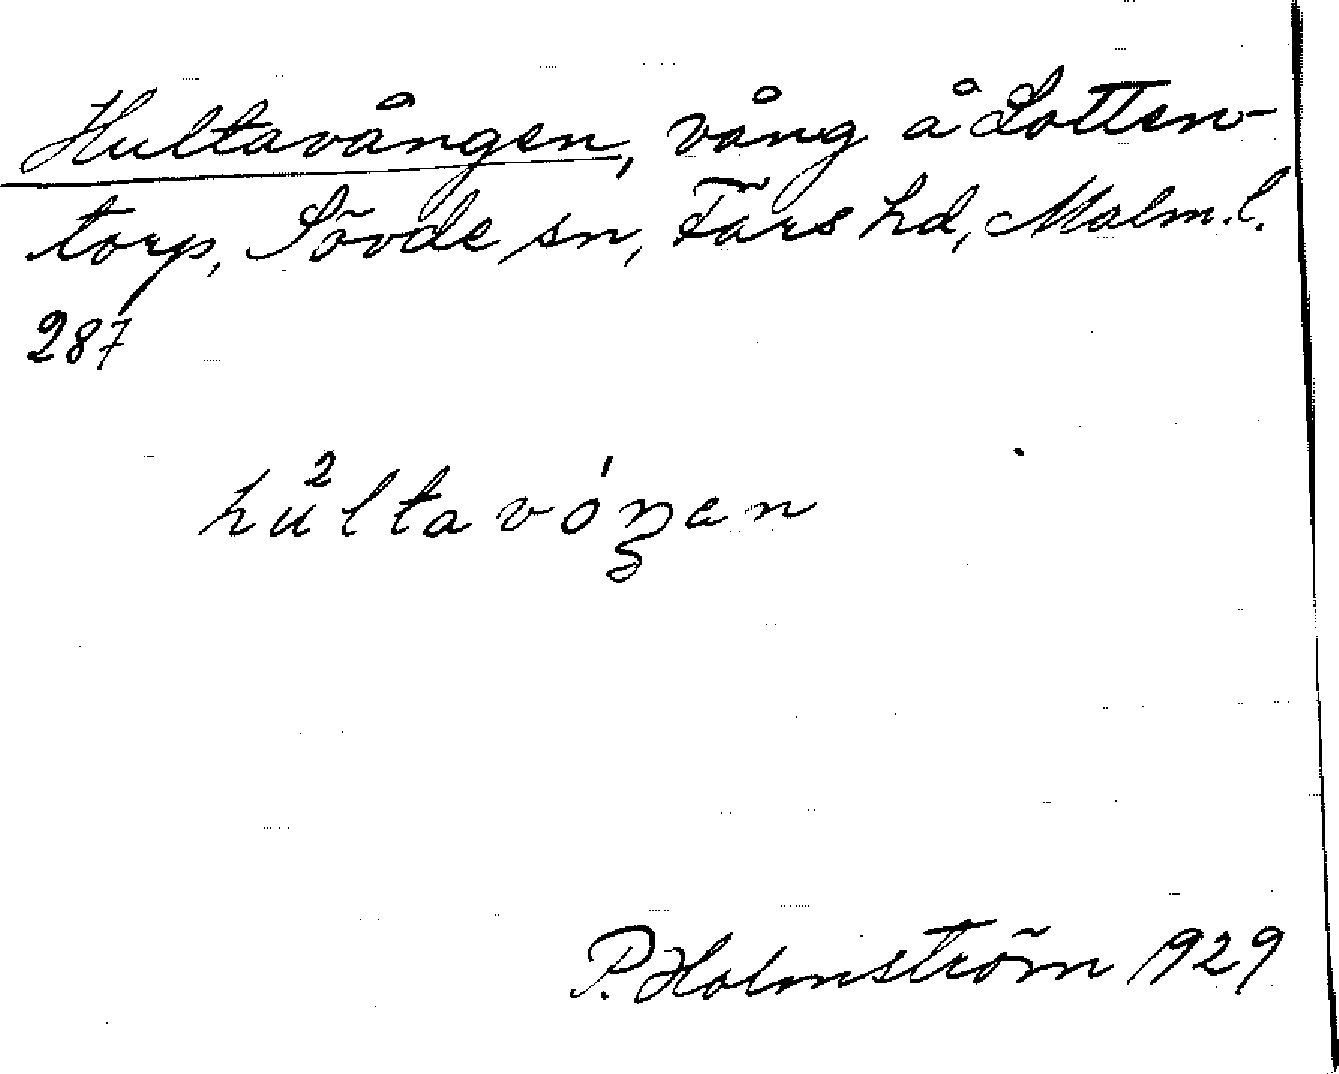 Hultavången, vång å Lotten-
torp, Sövde sn, Färs hd, Malm. l.
287
hu²ltavóŋen
P. Holmström 1929